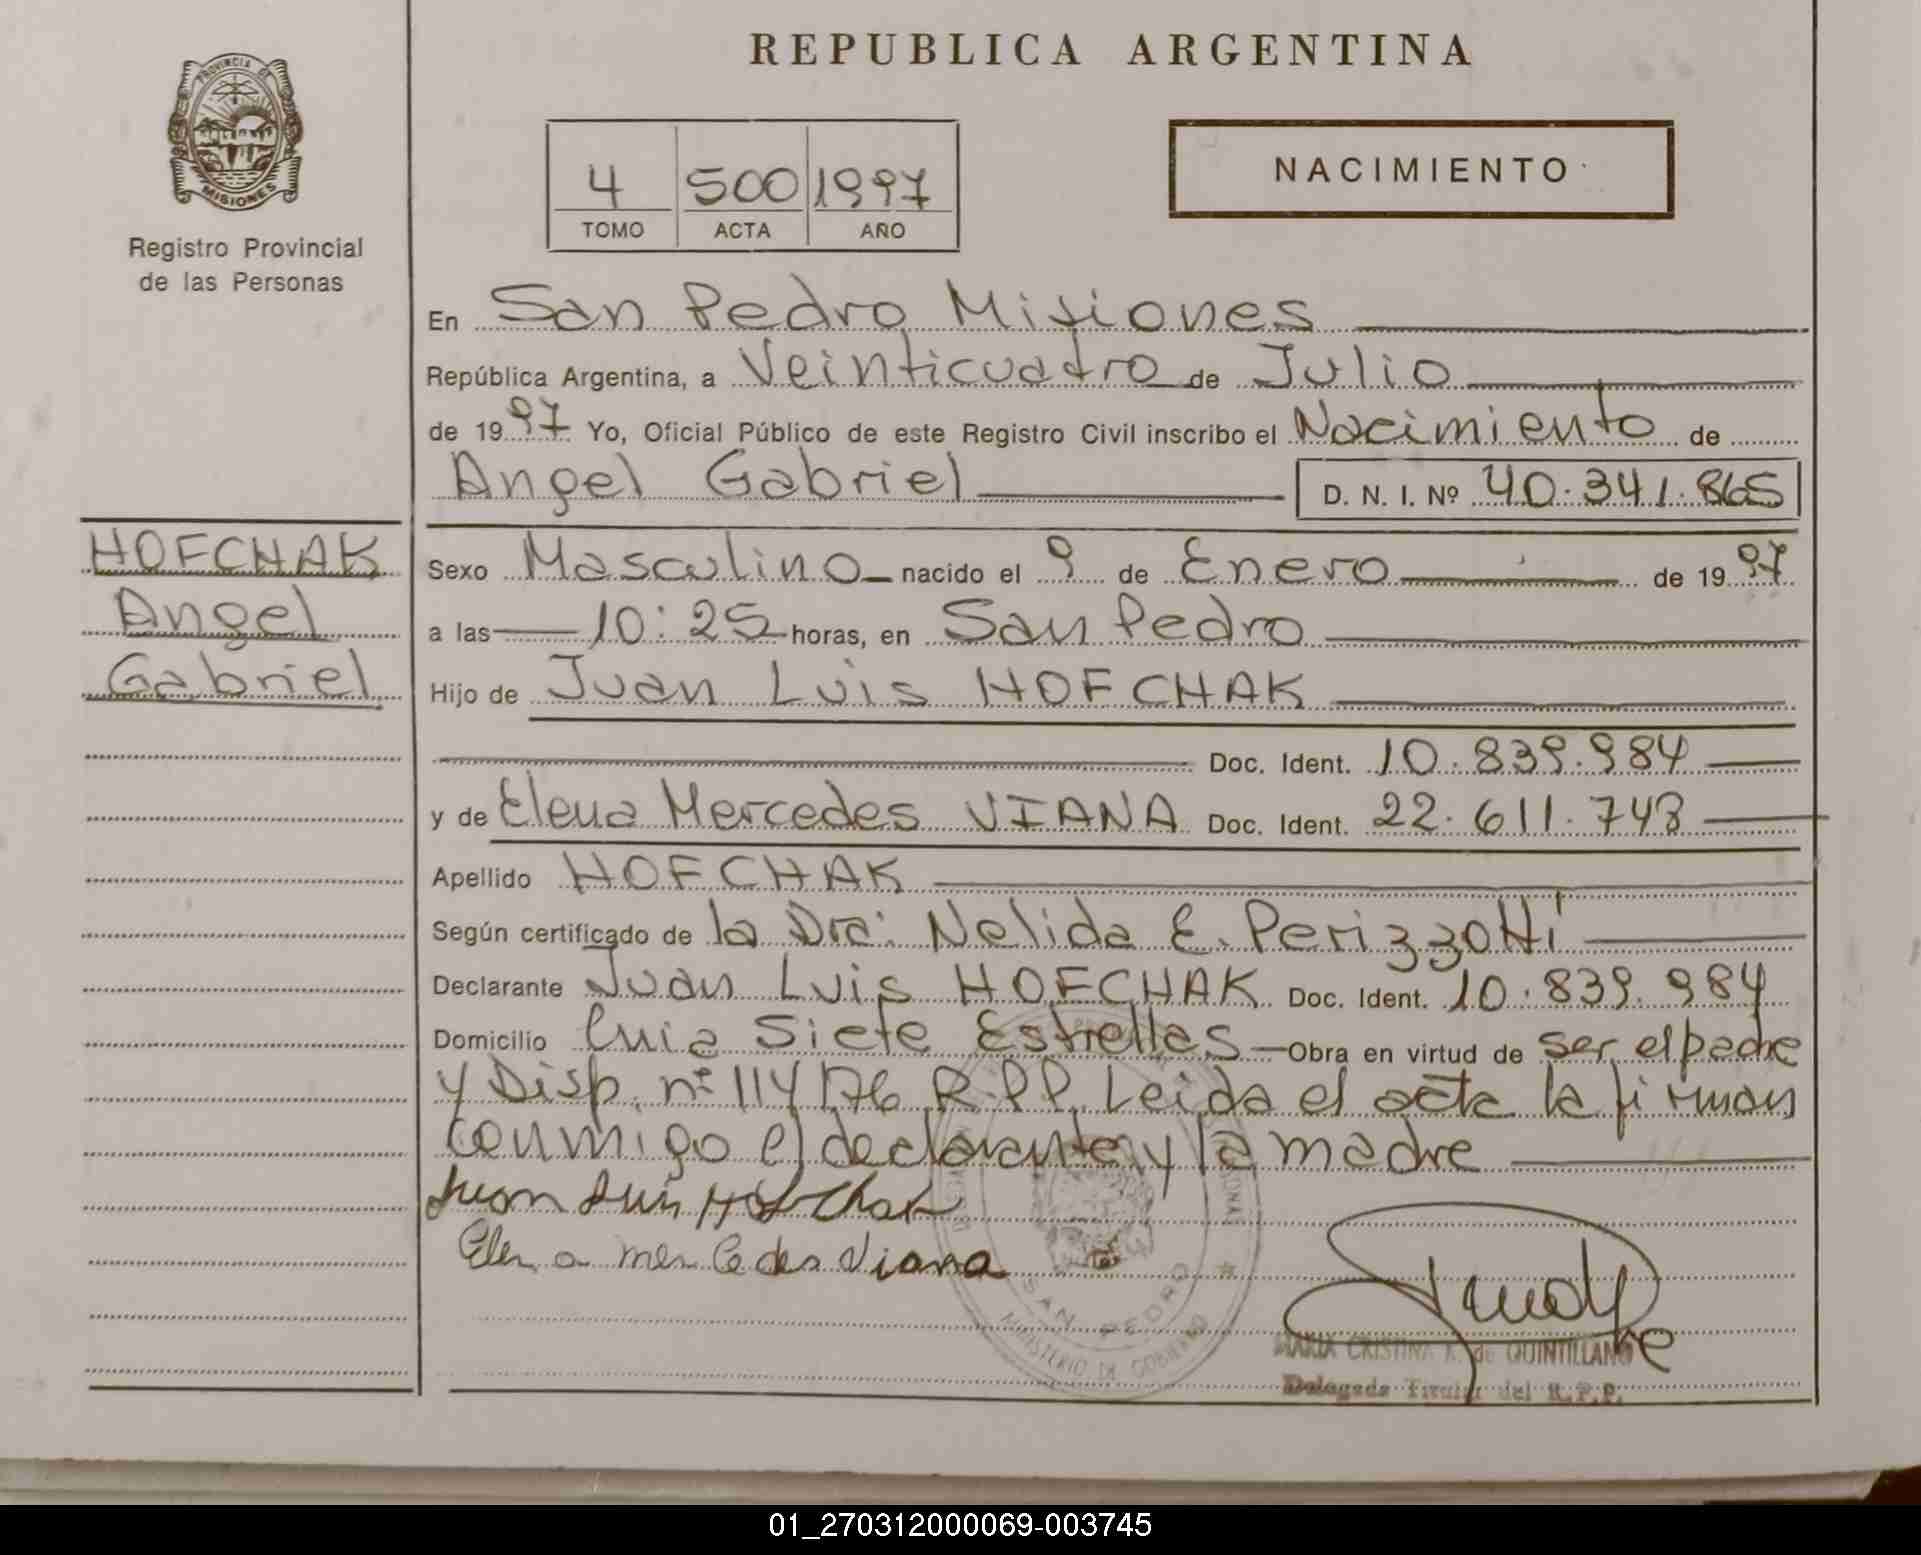 REPUBLICA ARGENTINA
PROVINCIA DE
MISIONES
Registro Provincial
de las Personas
4 500 1997
TOMO ACTA AÑO
NACIMIENTO
En San Pedro Misiones
República Argentina, a Veinticuatro de Julio
de 1997 Yo, Oficial Público de este Registro Civil inscribo el Nacimiento de
Angel Gabriel D. N. I. Nº 40.341.865
HOFCHAK
Angel
Gabriel
Sexo Masculino nacido el 9 de Enero de 1997
a las 10:25 horas, en San Pedro
Hijo de Juan Luis HOFCHAK
Doc. Ident. 10.839.984
y de Elena Mercedes VIANA Doc. Ident. 22.611.743
Apellido HOFCHAK
Según certificado de la Dra. Nelida E. Perizzotti
Declarante Juan Luis HOFCHAK Doc. Ident. 10.839.984
Domicilio Siete Estrellas Obra en virtud de ser el padre
y Disp. nº 114/76 R.P.P. Leida el acta la firman
conmigo el declarante y la madre
Juan Luis Hofchak
Elena mercedes Viana
SAN PEDRO
MINISTERIO DE GOBIERNO
MARIA CRISTINA K. de QUINTILLANO
Delegada Titular del R.P.P.
01_270312000069-003745